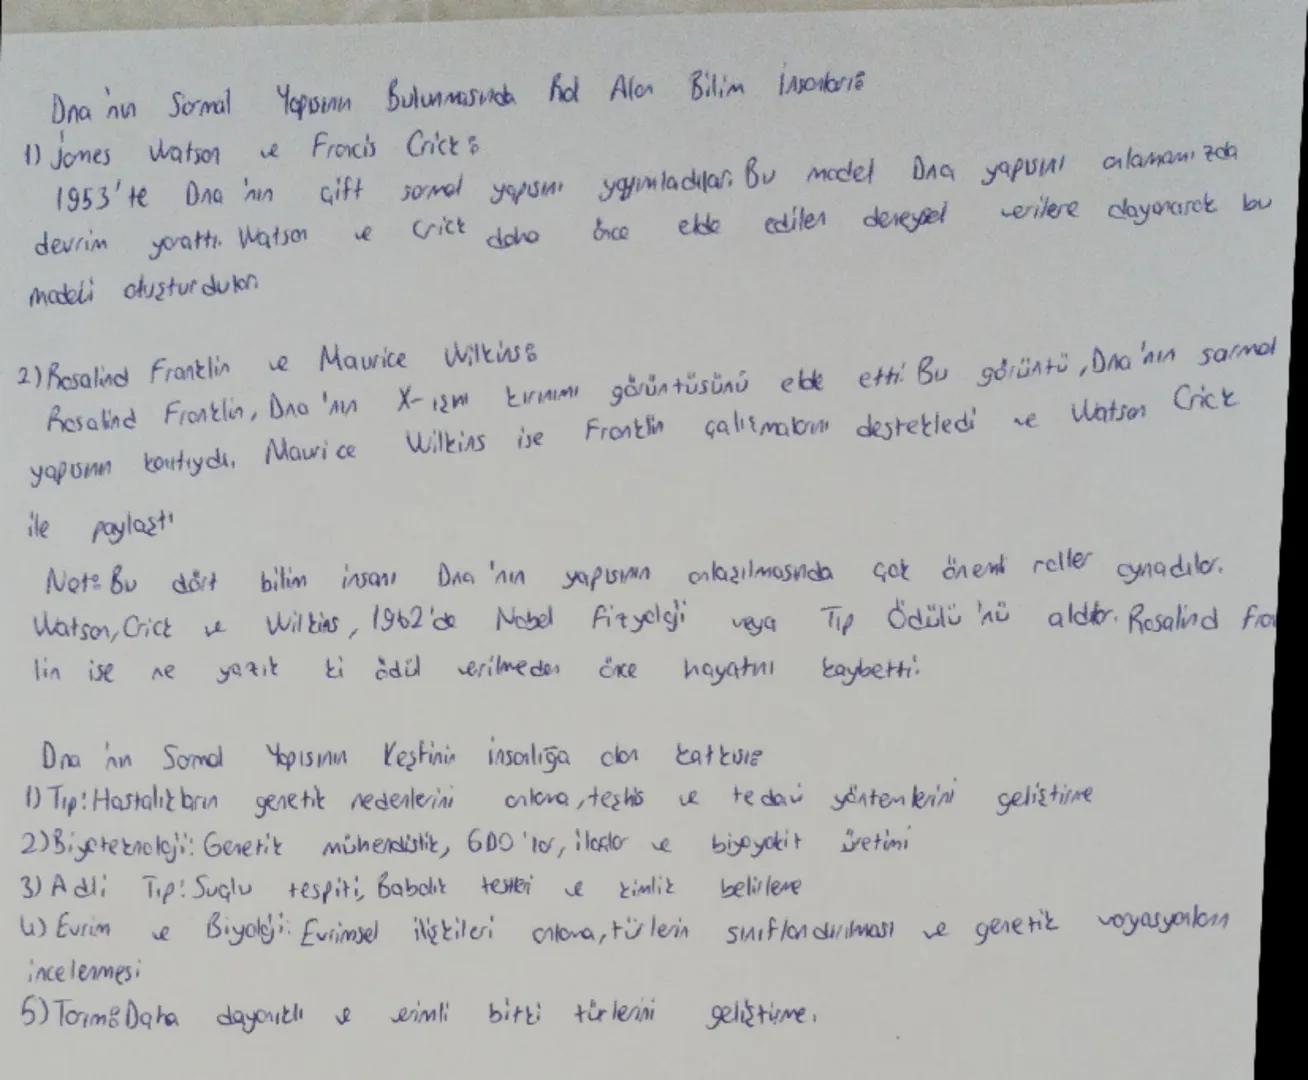 Dna'nın Sarmal Yapısının Bulunmasında Rol Alan Bilim İnsanları:
1) James Watson ve Francis Crick:
1953'te Dna'nın Çift sarmal yapısını yayımladılar. Bu model Dna yapısını anlamamızda
devrim yarattı. Watson ve Crick daha önce elde edilen deneysel verilere dayanarak bu
modeli oluşturdular.
2) Rosalind Franklin ve Maurice Wilkins:
Rosalind Franklin, Dna'nın X-ışını kırınımı görüntüsünü elde etti. Bu görüntü, Dna'nın sarmal
yapısının kanıtıydı. Maurice Wilkins ise Franklin çalışmalarını destekledi ve Watson Crick
ile paylaştı
Not: Bu dört bilim insanı Dna'nın yapısının anlaşılmasında çok önemli roller oynadılar.
Watson, Crick ve Wilkins, 1962'de Nobel Fizyoloji veya Tıp Ödülü'nü aldılar. Rosalind Fran
lin ise ne yazık ki ödül verilmeden önce hayatını kaybetti.
Dna'nın Sarmal Yapısının Keşfinin insanlığa olan katkısı:
1) Tıp: Hastalıkların genetik nedenlerini anlama, teşhis ve tedavi yöntemlerini geliştirme
2) Biyoteknoloji: Genetik mühendislik, GDO'lar, ilaçlar ve biyoyakıt üretimi
3) Adli Tıp: Suçlu tespiti, Babalık testleri ve kimlik belirleme
4) Evrim ve Biyoloji: Evrimsel ilişkileri anlama, türlerin sınıflandırılması ve genetik varyasyonların
incelenmesi
5) Tarım: Daha dayanıklı ve verimli bitki türlerini geliştirme.